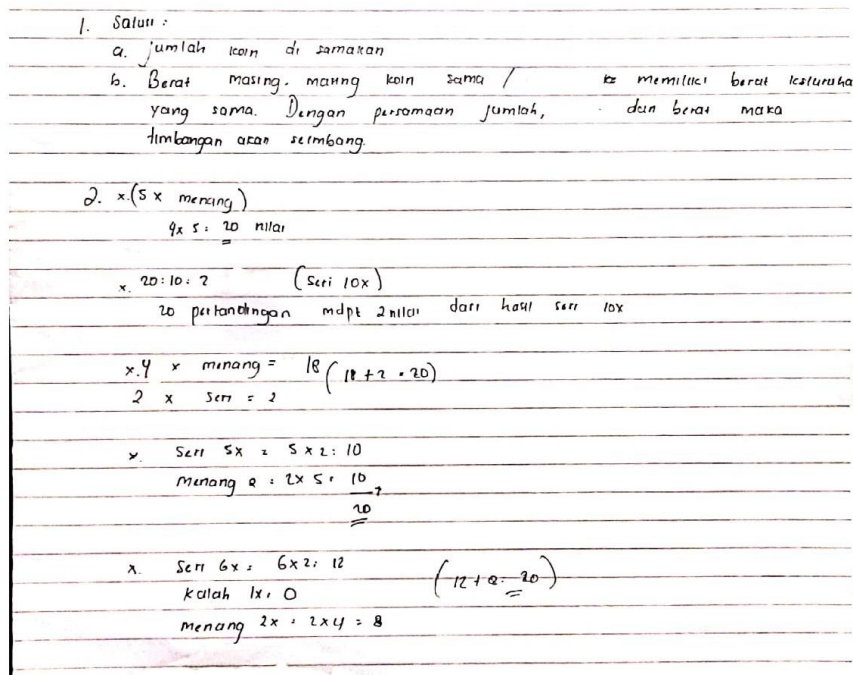 1. Solusi :
a. jumlah koin di samakan
b. Berat masing. masing koin sama / memiliki berat keseluruha
yang sama. Dengan persamaan jumlah, dan berat maka
timbangan akan seimbang.
2. x. (5 x menang)
4x5 : 20 nilai
x. 20:10 : 2 (Seri 10x)
20 pertandingan mdpt 2 nilai dari hasil seri 10x
x. 4 x menang = 18 (18 + 2 = 20)
2 x Seri = 2
x. Seri 5x = 5 x 2 : 10
Menang 2 : 2 x 5 : 10
+
20
x. Seri 6x : 6x2 : 12
Kalah 1x : 0 (12 + 8 : 20)
menang 2x : 2x4 = 8